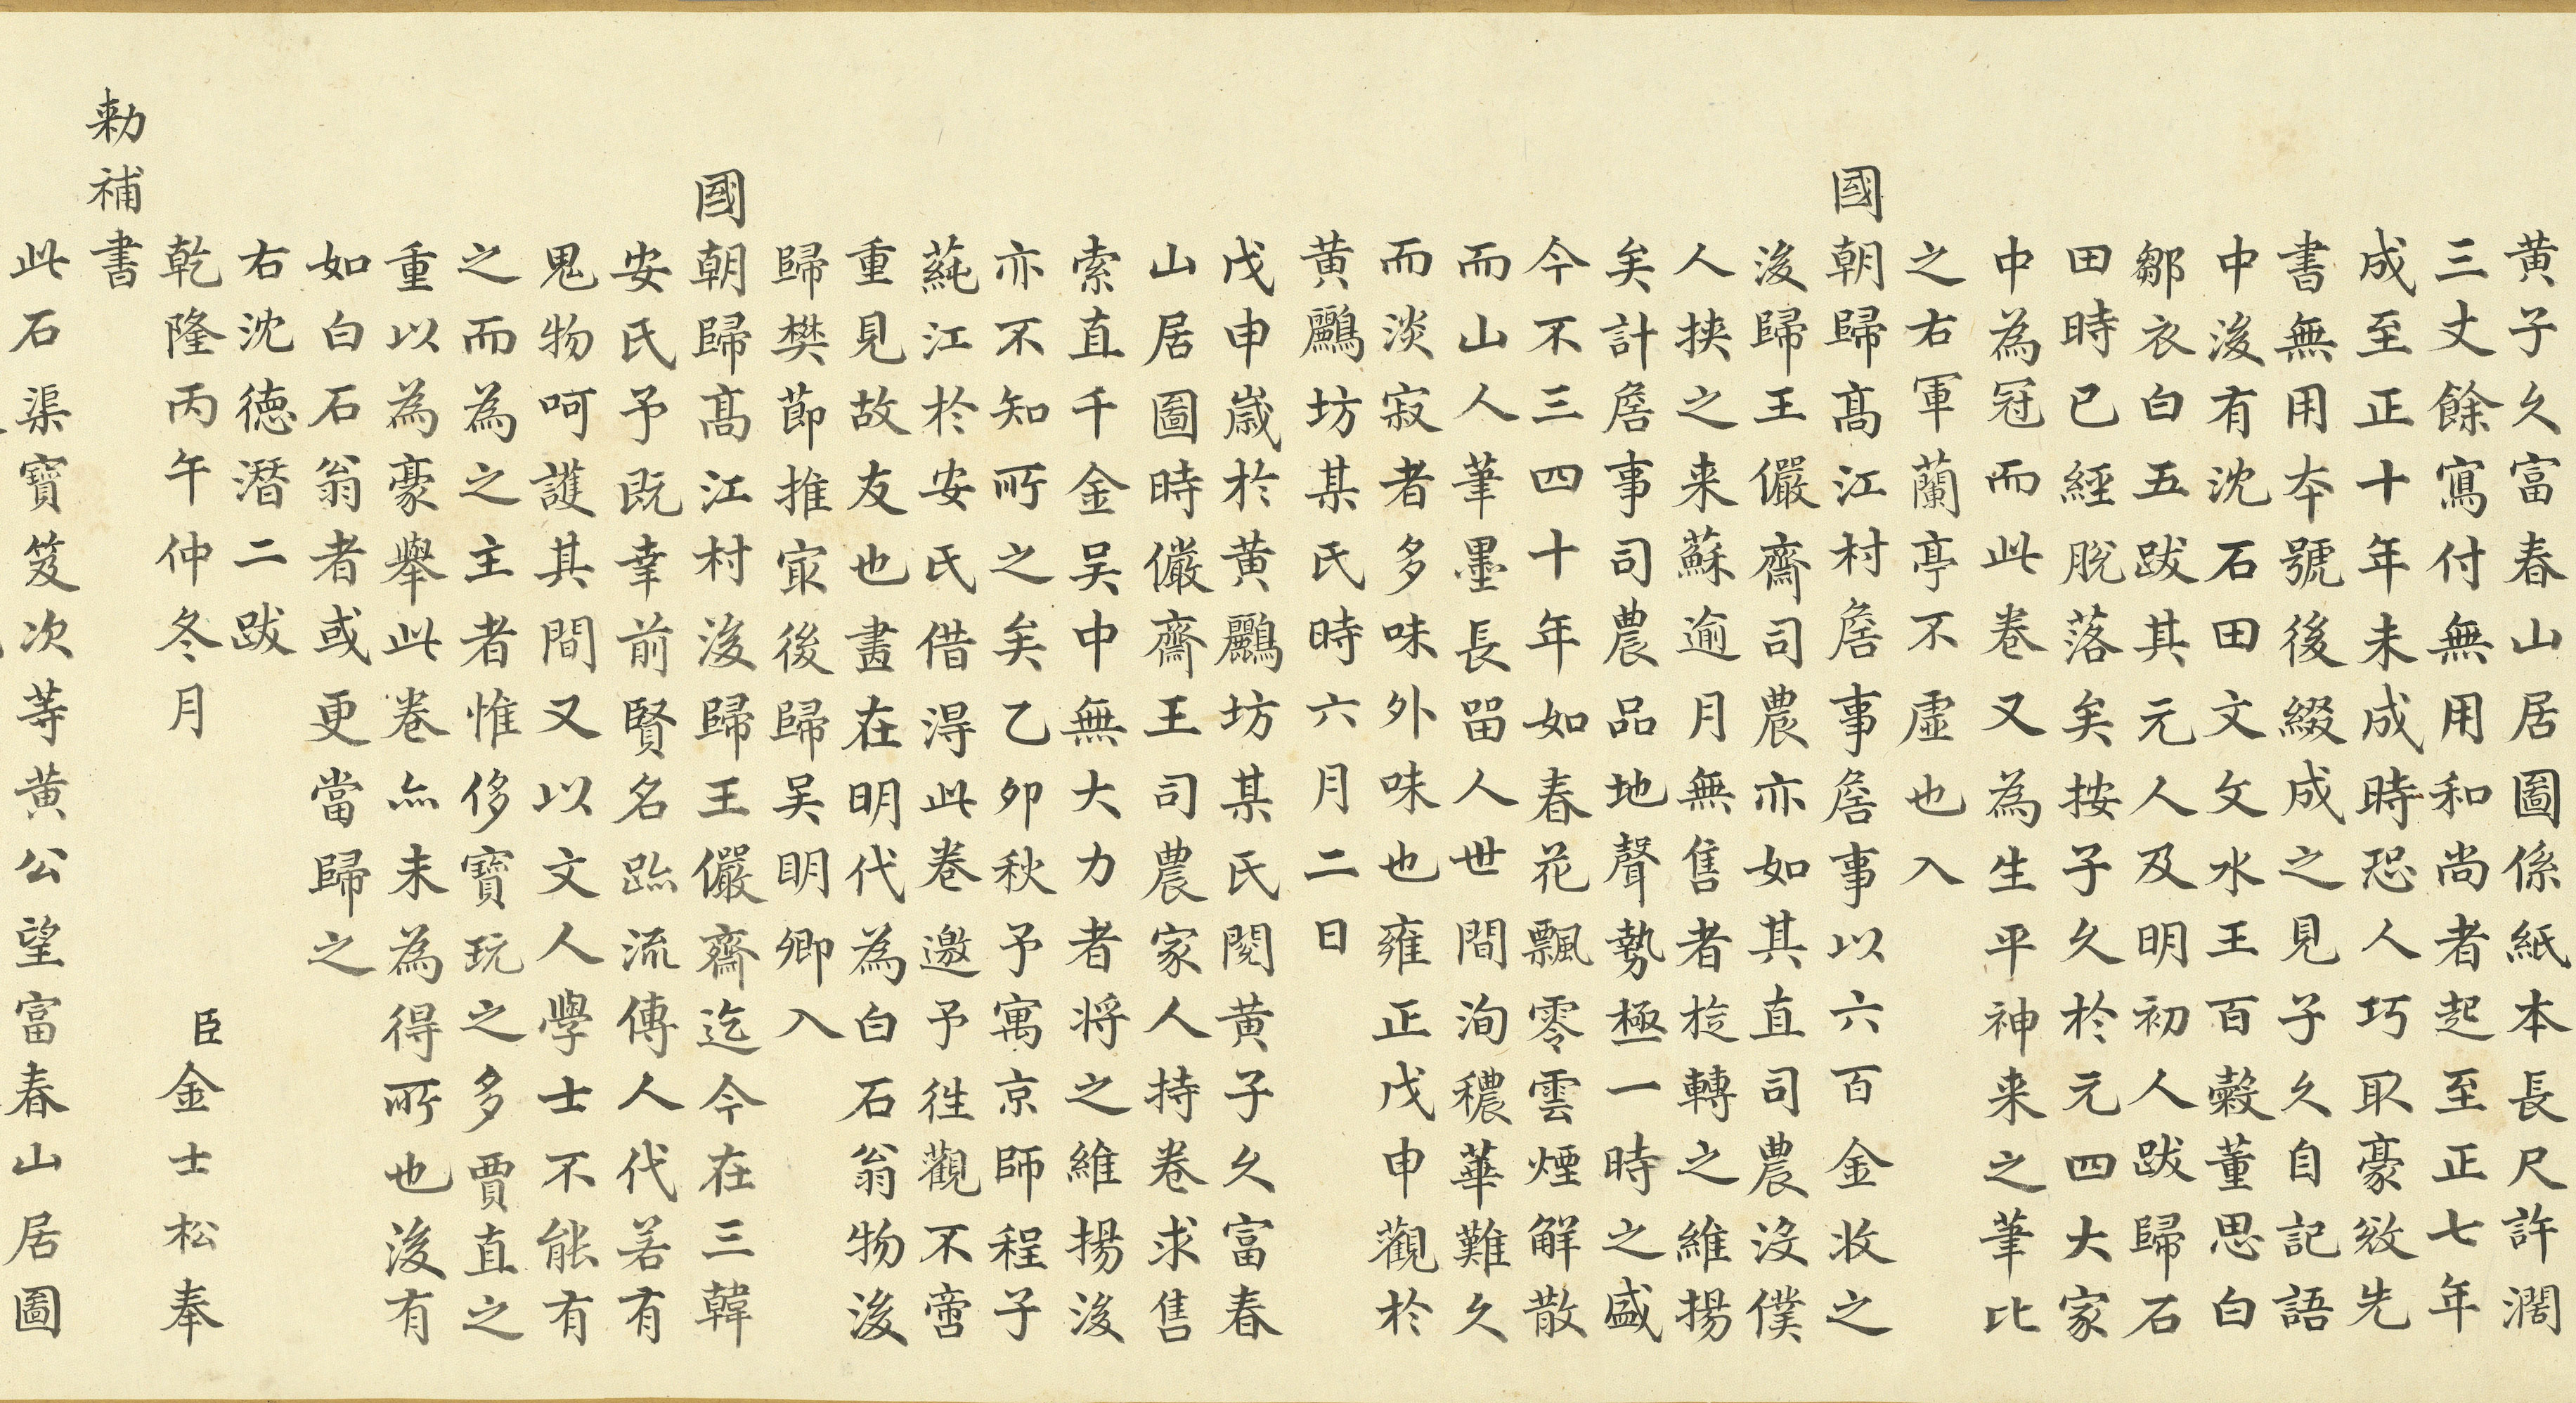 黄子久富春山居圖係紙本長尺許濶
三丈餘寫付無用和尚者起至正七年
成至正十年未成時恐人巧取豪敓先
書無用夲號後綴成之見子久自記語
中後有沈石田文文水王百穀董思白
鄒衣白五跋其元人及明初人跋歸石
田時已經脫落矣按子久於元四大家
中為冠而此卷又為生平神来之筆比
之右軍蘭亭不虛也入
國朝歸髙江村詹事詹事以六百金收之
後歸王儼齋司農亦如其直司農沒僕
人挟之来蘇逾月無售者旋轉之維揚
矣計詹事司農品地聲勢極一時之盛
今不三四十年如春花飄零雲煙解散
而山人筆墨長留人世間洵穠華難久
而淡寂者多味外味也雍正戊申觀於
黄鸝坊某氏時六月二日
戊申歲於黄鸝坊某氏閱黄子久富春
山居圖時儼齋王司農家人持卷求售
索直千金吴中無大力者将之維揚後
亦不知所之矣乙夘秋予寓京師程子
蒓江於安氏借得此卷邀予徃觀不啻
重見故友也畫在明代為白石翁物後
歸樊節推冣後歸吴明卿入
國朝歸髙江村後歸王儼齋迄今在三韓
安氏予既幸前賢名跡流傳人代若有
鬼物呵護其間又以文人學士不能有
之而為之主者惟侈寶玩之多賈直之
重以為豪舉此卷亦未為得所也後有
如白石翁者或更當歸之
右沈德潛二跋
乾隆丙午仲冬月 臣金士松奉
勅補書
此石渠寶笈次等黄公望富春山居圖